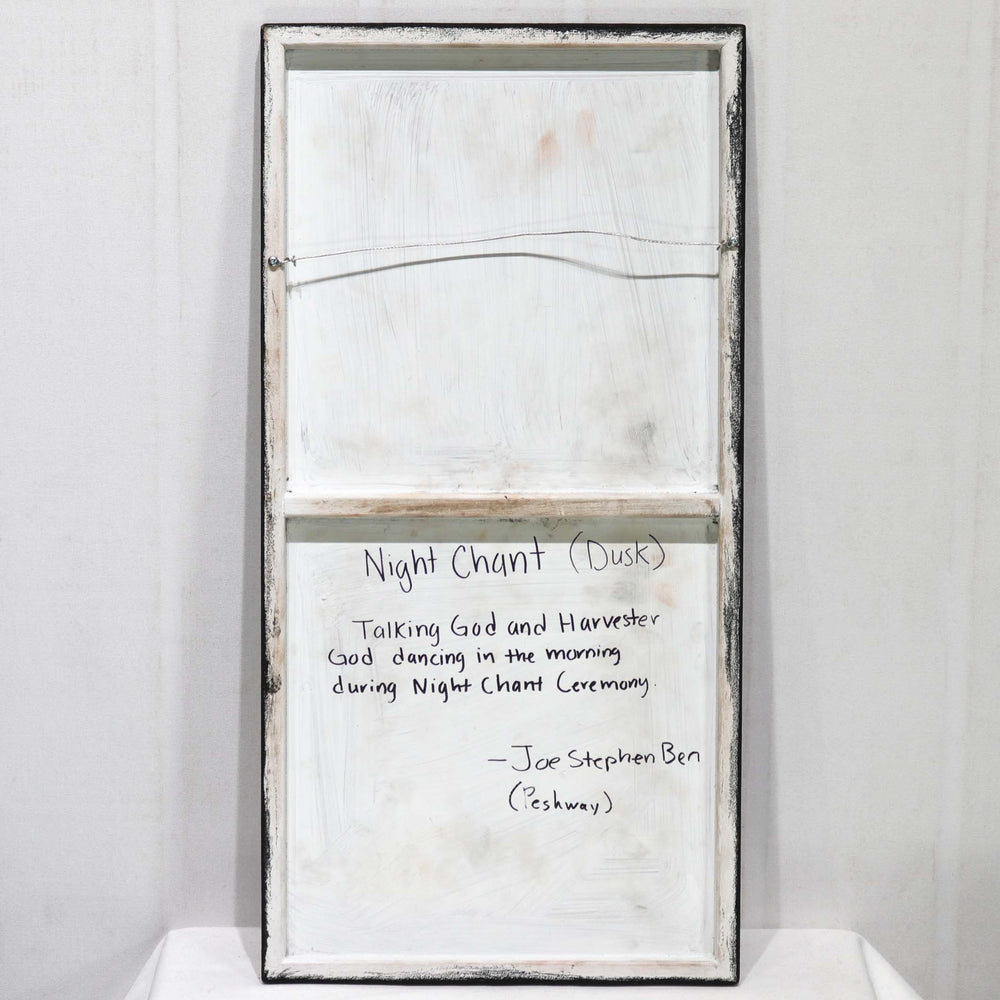 Night Chant (Dusk)
Talking God and Harvester
God dancing in the morning
during Night Chant Ceremony.
- Joe Stephen Ben
(Peshway)